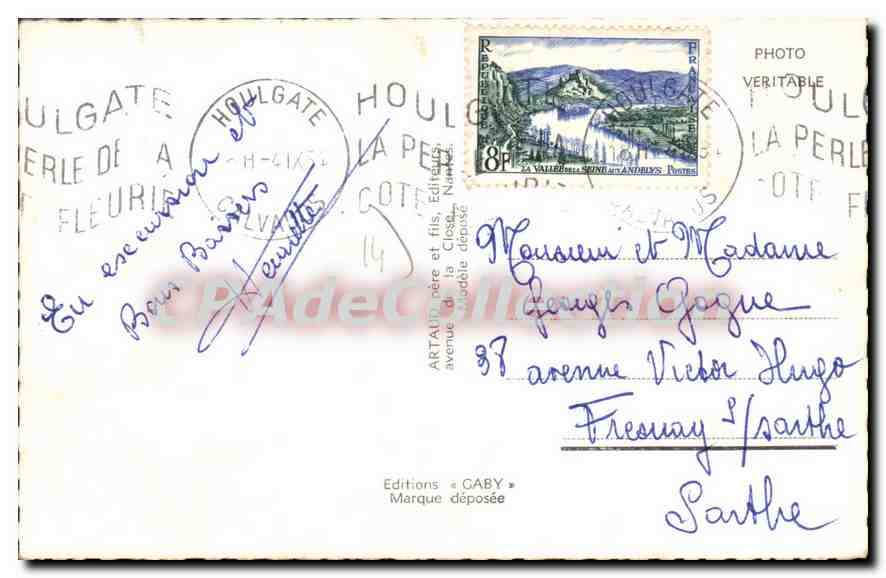 PHOTO
VERITABLE
REPUBLIQUE
FRANCAISE
8F
LA VALLEE DE LA SEINE AUX ANDELYS POSTES
HOULGATE
LA PERLE DE LA
COTE FLEURIE
HOULGATE
CALVADOS
HOULGATE
LA PER
COTE
HOULGATE
CALVADOS
HOUL
LA PERL
COTE
FLE
En excursion et
Bons Baisers
14
ARTAUD père et fils, Editeurs,
avenue de la Close, Nantes.
Modèle déposé
CPAdeCollection
Monsieur et Madame
Georges Gogue
38 avenue Victor Hugo
Fresnay s/sarthe
Sarthe
Editions « GABY »
Marque déposée